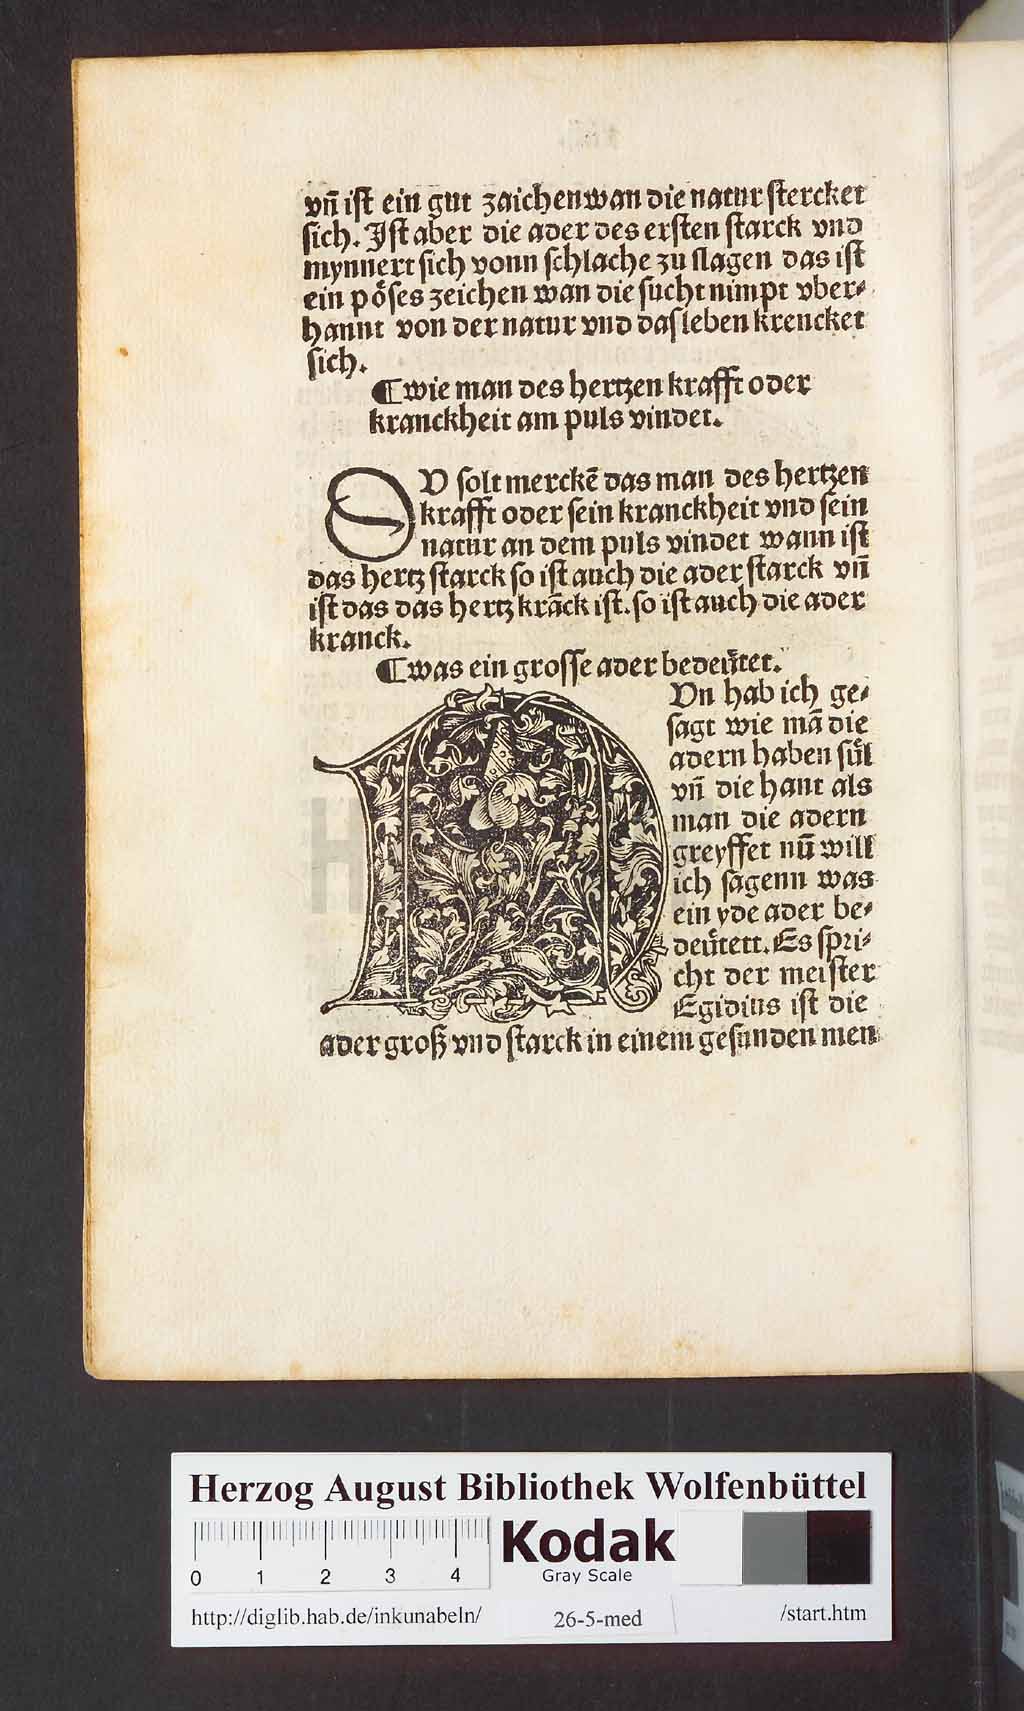 vñ ist ein gut zaichen wan die natur stercket
sich. Ist aber die ader des ersten starck vnd
mynnert sich vonn schlache zu slagen das ist
ein pöses zeichen wan die sucht nimpt vber⸗
hannt von der natur vnd das leben krencket
sich.
¶ wie man des hertzen krafft oder
kranckheit am puls vindet.
DV solt merckē das man des hertzen
krafft oder sein kranckheit vnd sein
natur an dem puls vindet wann ist
das hertz starck so ist auch die ader starck vñ
ist das das hertz krāck ist. so ist auch die ader
kranck.
¶ was ein grosse ader bedeütet.
NVn hab ich ge⸗
sagt wie mā die
adern haben sül
vñ die hant als
man die adern
greyffet nū will
ich sagenn was
ein yde ader be⸗
deütett. Es spri⸗
cht der meister
Egidius ist die
ader groß vnd starck in einem gesunden men
Herzog August Bibliothek Wolfenbüttel
0 1 2 3 4
Kodak
Gray Scale
http://diglib.hab.de/inkunabeln/ 26-5-med /start.htm